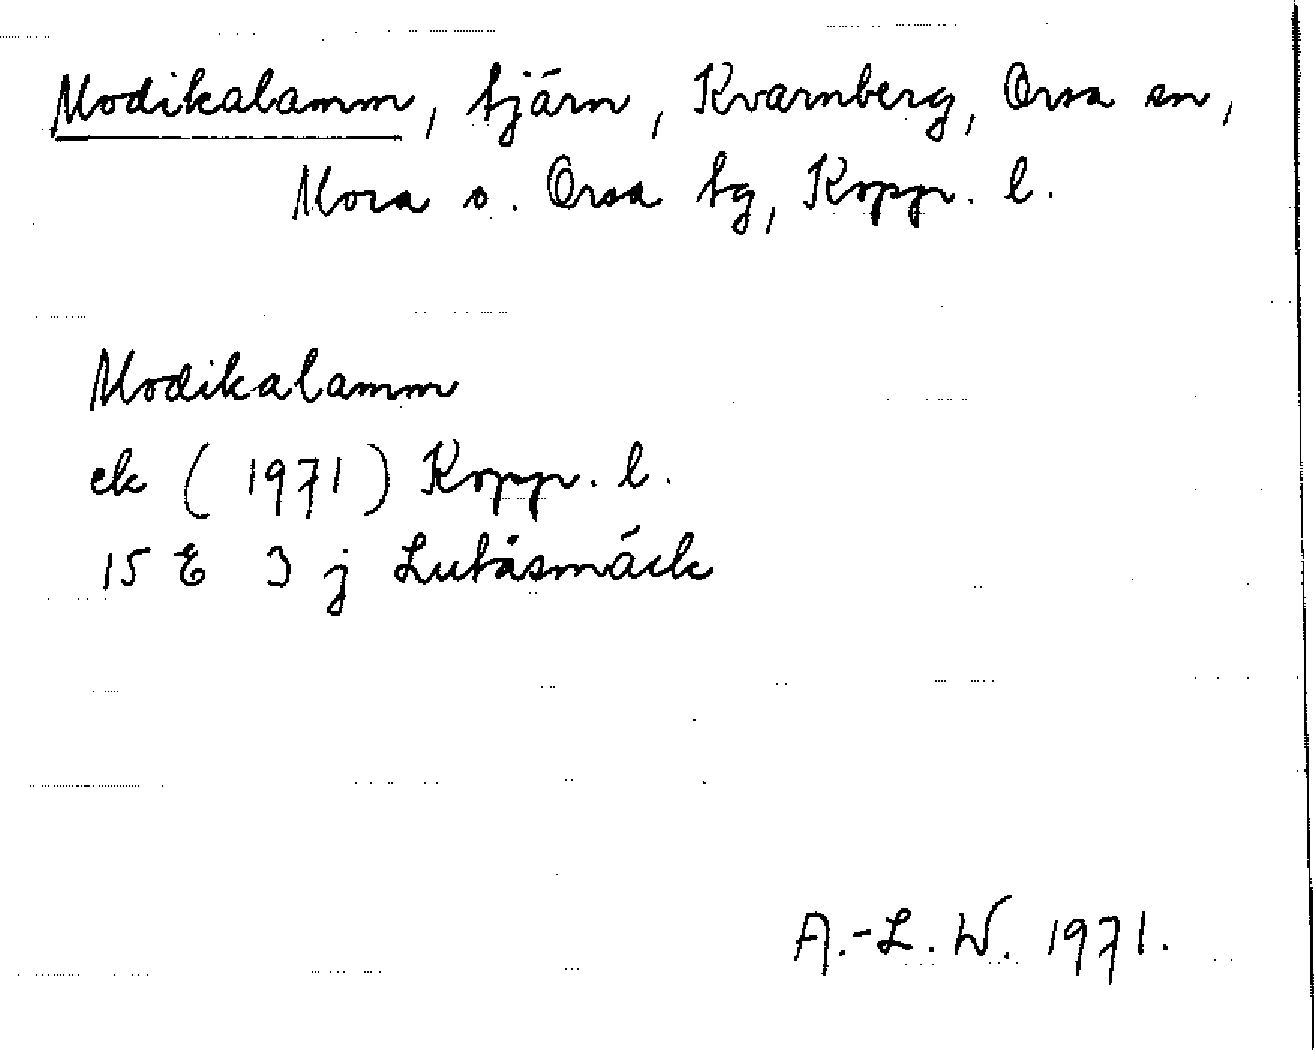 Modikalamm, tjärn, Kvarnberg, Orsa sn,
Mora o. Orsa tg, Kopp. l.
Modikalamm
ek (1971) Kopp. l.
15 E 3 j Lutåsmäck
A.-L. W. 1971.